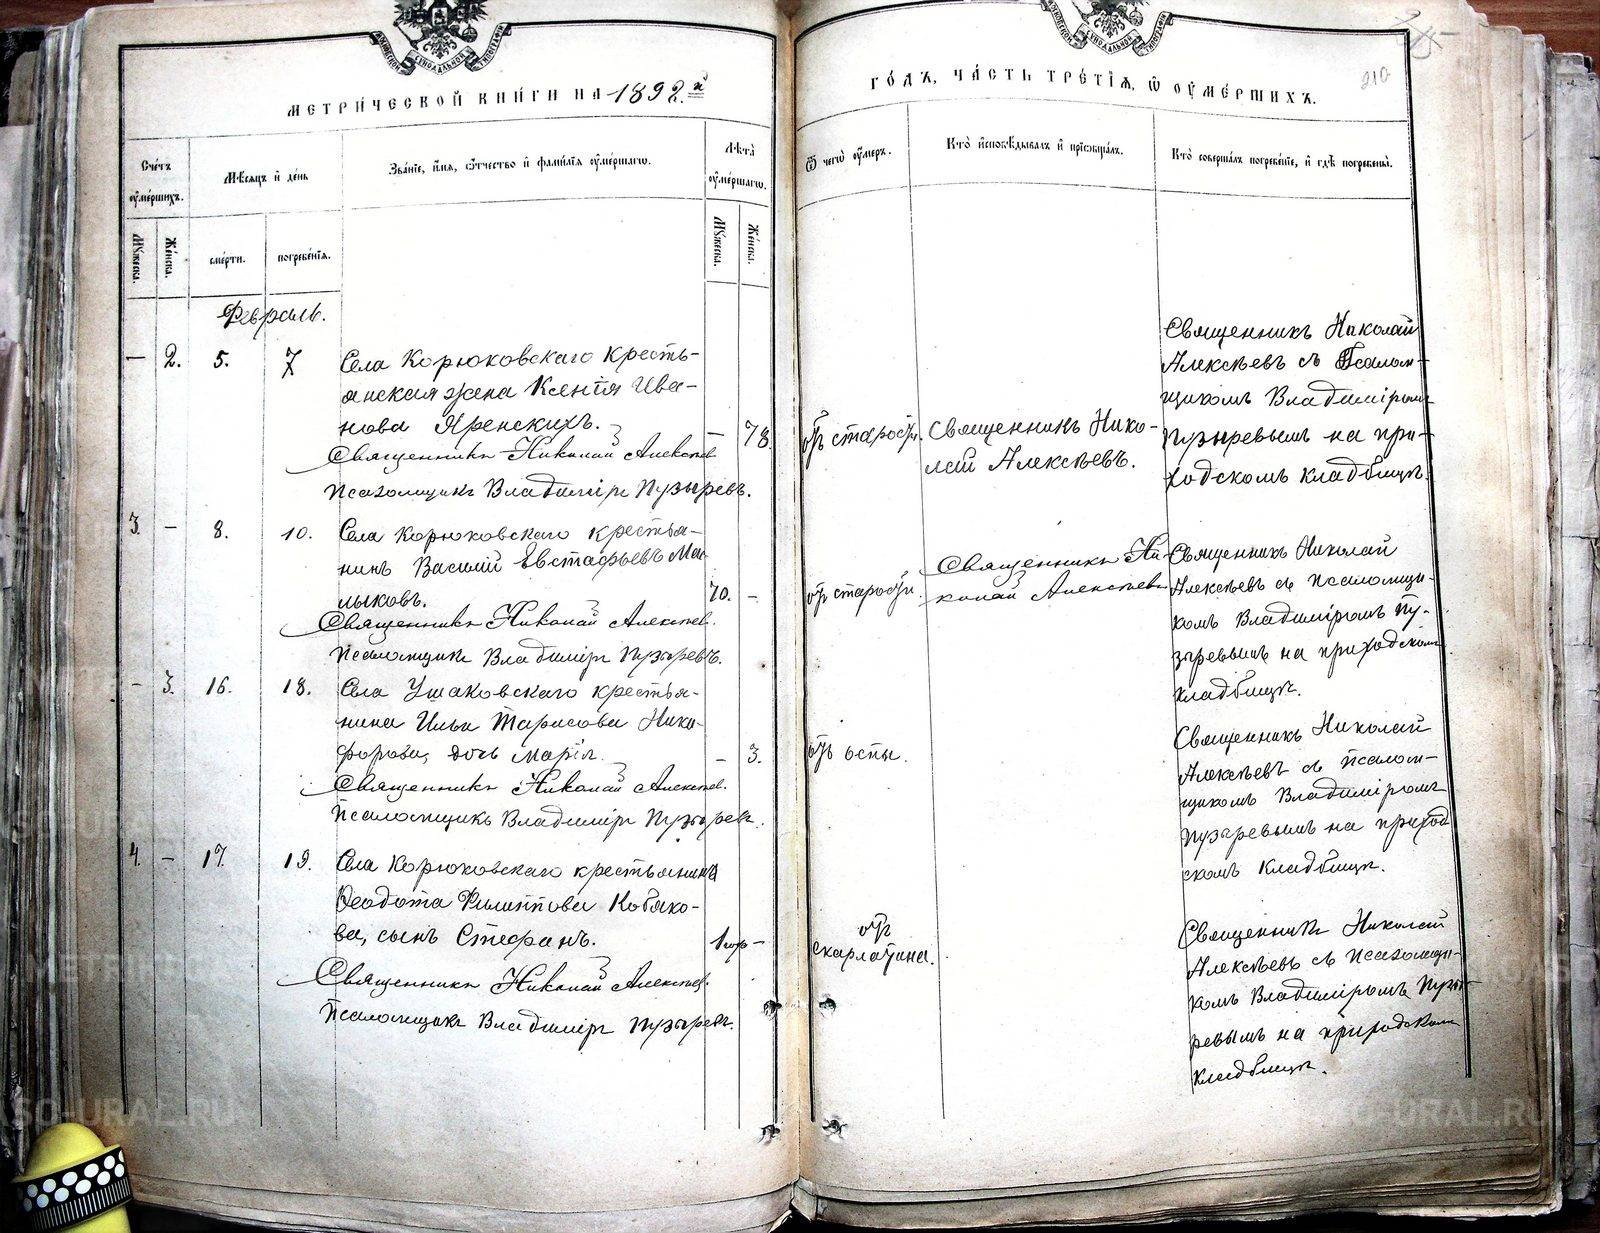 МЕТРИ́ЧЕСКОЙ КНИ́ГИ НА 1892.й
ГО́ДЪ, ЧА́СТЬ ТРЕ́ТІѦ, Ѡ҆ ОУ҆МЕ́РШИХЪ.
210
Сче́тъ оу҆ме́ршихъ.
Мѣ́сяцъ и҆ де́нь
Зва́ніе, и҆́мя, ѻ҆́тчество и҆ фами́лія оу҆ме́ршагѡ.
Лѣ́та оу҆ме́ршагѡ.
Ѿ чегѡ̀ оу҆́меръ.
Кто̀ и҆сповѣ́дывалъ и҆ прїѡбща́лъ.
Кто̀ соверша́лъ погребе́нїе, и҆ гдѣ̀ погребены̀.
Му́жеска.
Же́нска.
сме́рти.
погребе́нїя.
Му́жеска.
Же́нска.
Февраль.
— 2. 5. 7
Села Корюковскаго кресть-
янская жена Ксенія Ива-
нова Яренскихъ.
— 78.
Священникъ Николай Алексѣев
Псаломщикъ Владиміръ Пузыревъ.
отъ старости.
Священникъ Нико-
лай Алексѣевъ.
Священникъ Николай
Алексѣевъ съ Псалом-
щикомъ Владиміромъ
Пузыревымъ на при-
ходскомъ кладбищѣ.
3. — 8. 10.
Села Корюковскаго крестья-
нинъ Василій Евстафьевъ Ма-
лыковъ.
70. —
Священникъ Николай Алексѣев.
Псаломщикъ Владиміръ Пузыревъ.
отъ старости.
Священникъ Ни-
колай Алексѣевъ
Священникъ Николай
Алексѣевъ съ псаломщи-
комъ Владиміромъ Пу-
зыревымъ на приходскомъ
кладбищѣ.
— 3. 16. 18.
Села Ушаковскаго крестья-
нина Ильи Тарасова Ники-
форова, дочь Марія.
— 3.
Священникъ Николай Алексѣев.
Псаломщикъ Владиміръ Пузыревъ.
отъ оспы.
Священникъ Николай
Алексѣевъ съ псалом-
щикомъ Владиміромъ
Пузыревымъ на приход-
скомъ кладбищѣ.
4. — 17. 19.
Села Корюковскаго крестьянина
Ѳеодота Филиппова Кобяко-
ва, сынъ Стефанъ.
Священникъ Николай Алексѣев.
Псаломщикъ Владиміръ Пузыревъ.
отъ
скарлатина.
Священникъ Николай
Алексѣевъ съ псаломщи-
комъ Владиміромъ Пузы-
ревымъ на приходскомъ
кладбищѣ.